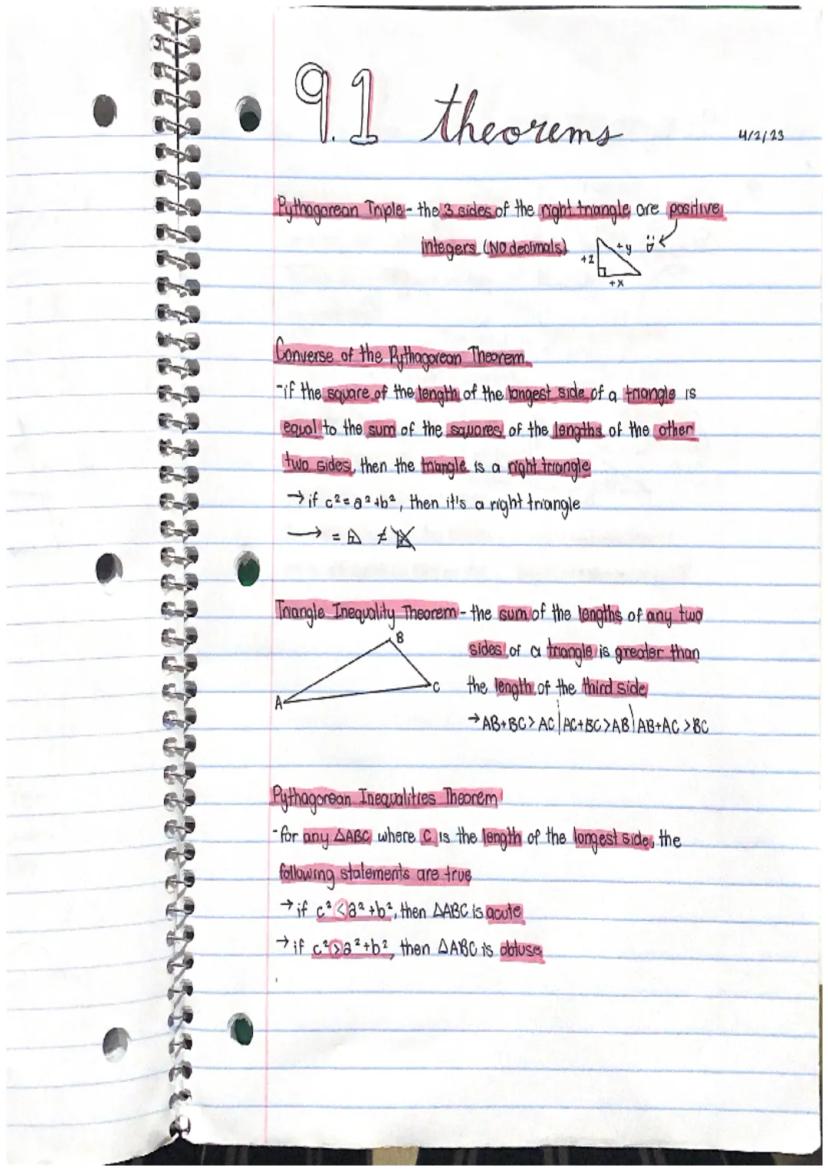 9.1 theorems
4/2/23
Pythagorean Triple - the 3 sides of the right triangle are positive
integers (No decimals)
+z
+y
+x
Converse of the Pythagorean Theorem
- if the square of the length of the longest side of a triangle is
equal to the sum of the squares of the lengths of the other
two sides, then the triangle is a right triangle
→ if c² = a² + b², then it's a right triangle
→ = ◺ ≠
Triangle Inequality Theorem - the sum of the lengths of any two
sides of a triangle is greater than
the length of the third side
→ AB+BC > AC | AC+BC > AB | AB+AC > BC
A
B
C
Pythagorean Inequalities Theorem
- for any △ABC where C is the length of the longest side, the
following statements are true
→ if c² < a² + b², then △ABC is acute
→ if c² > a² + b², then △ABC is obtuse